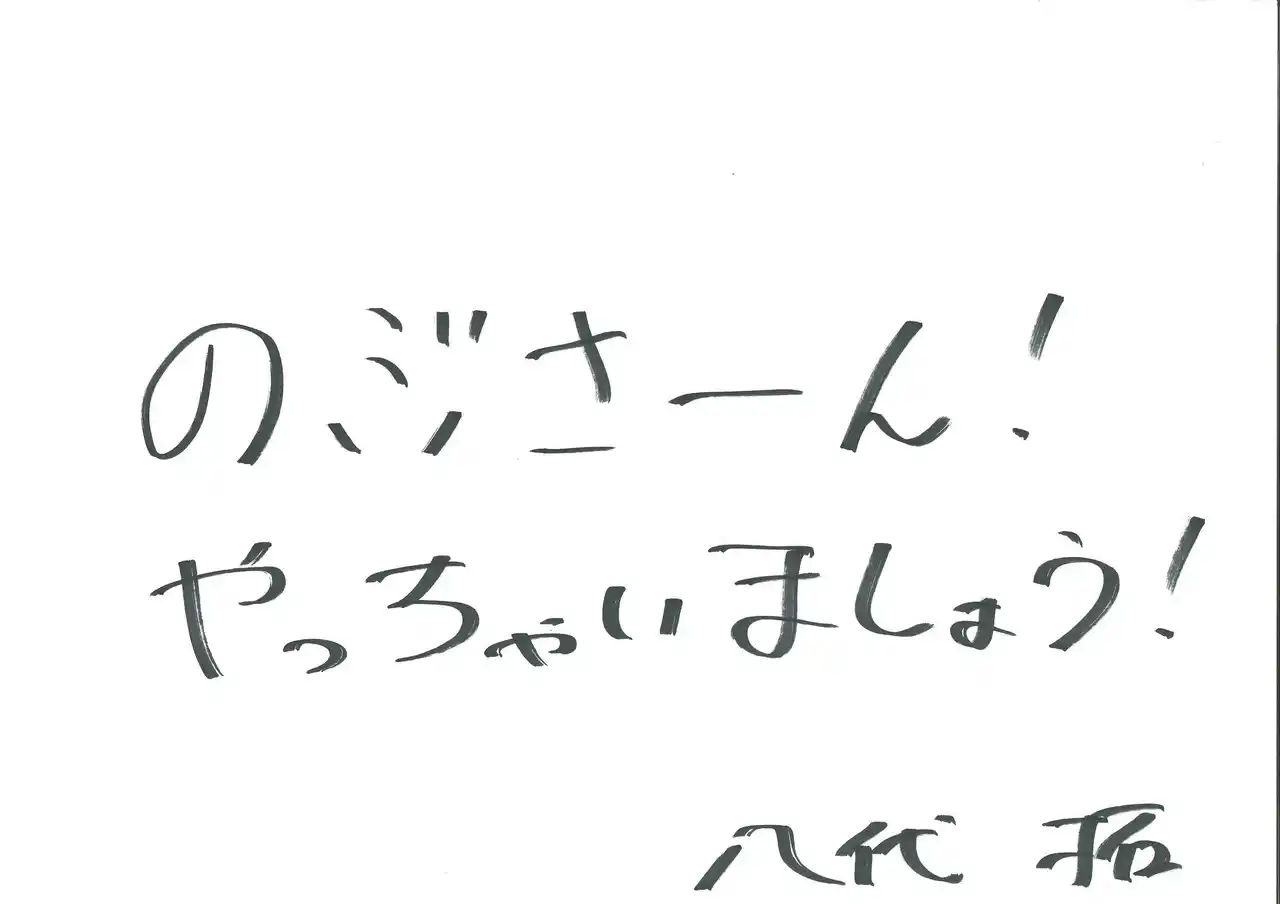 のジさーん!
やっちゃいましょう!
八代 拓